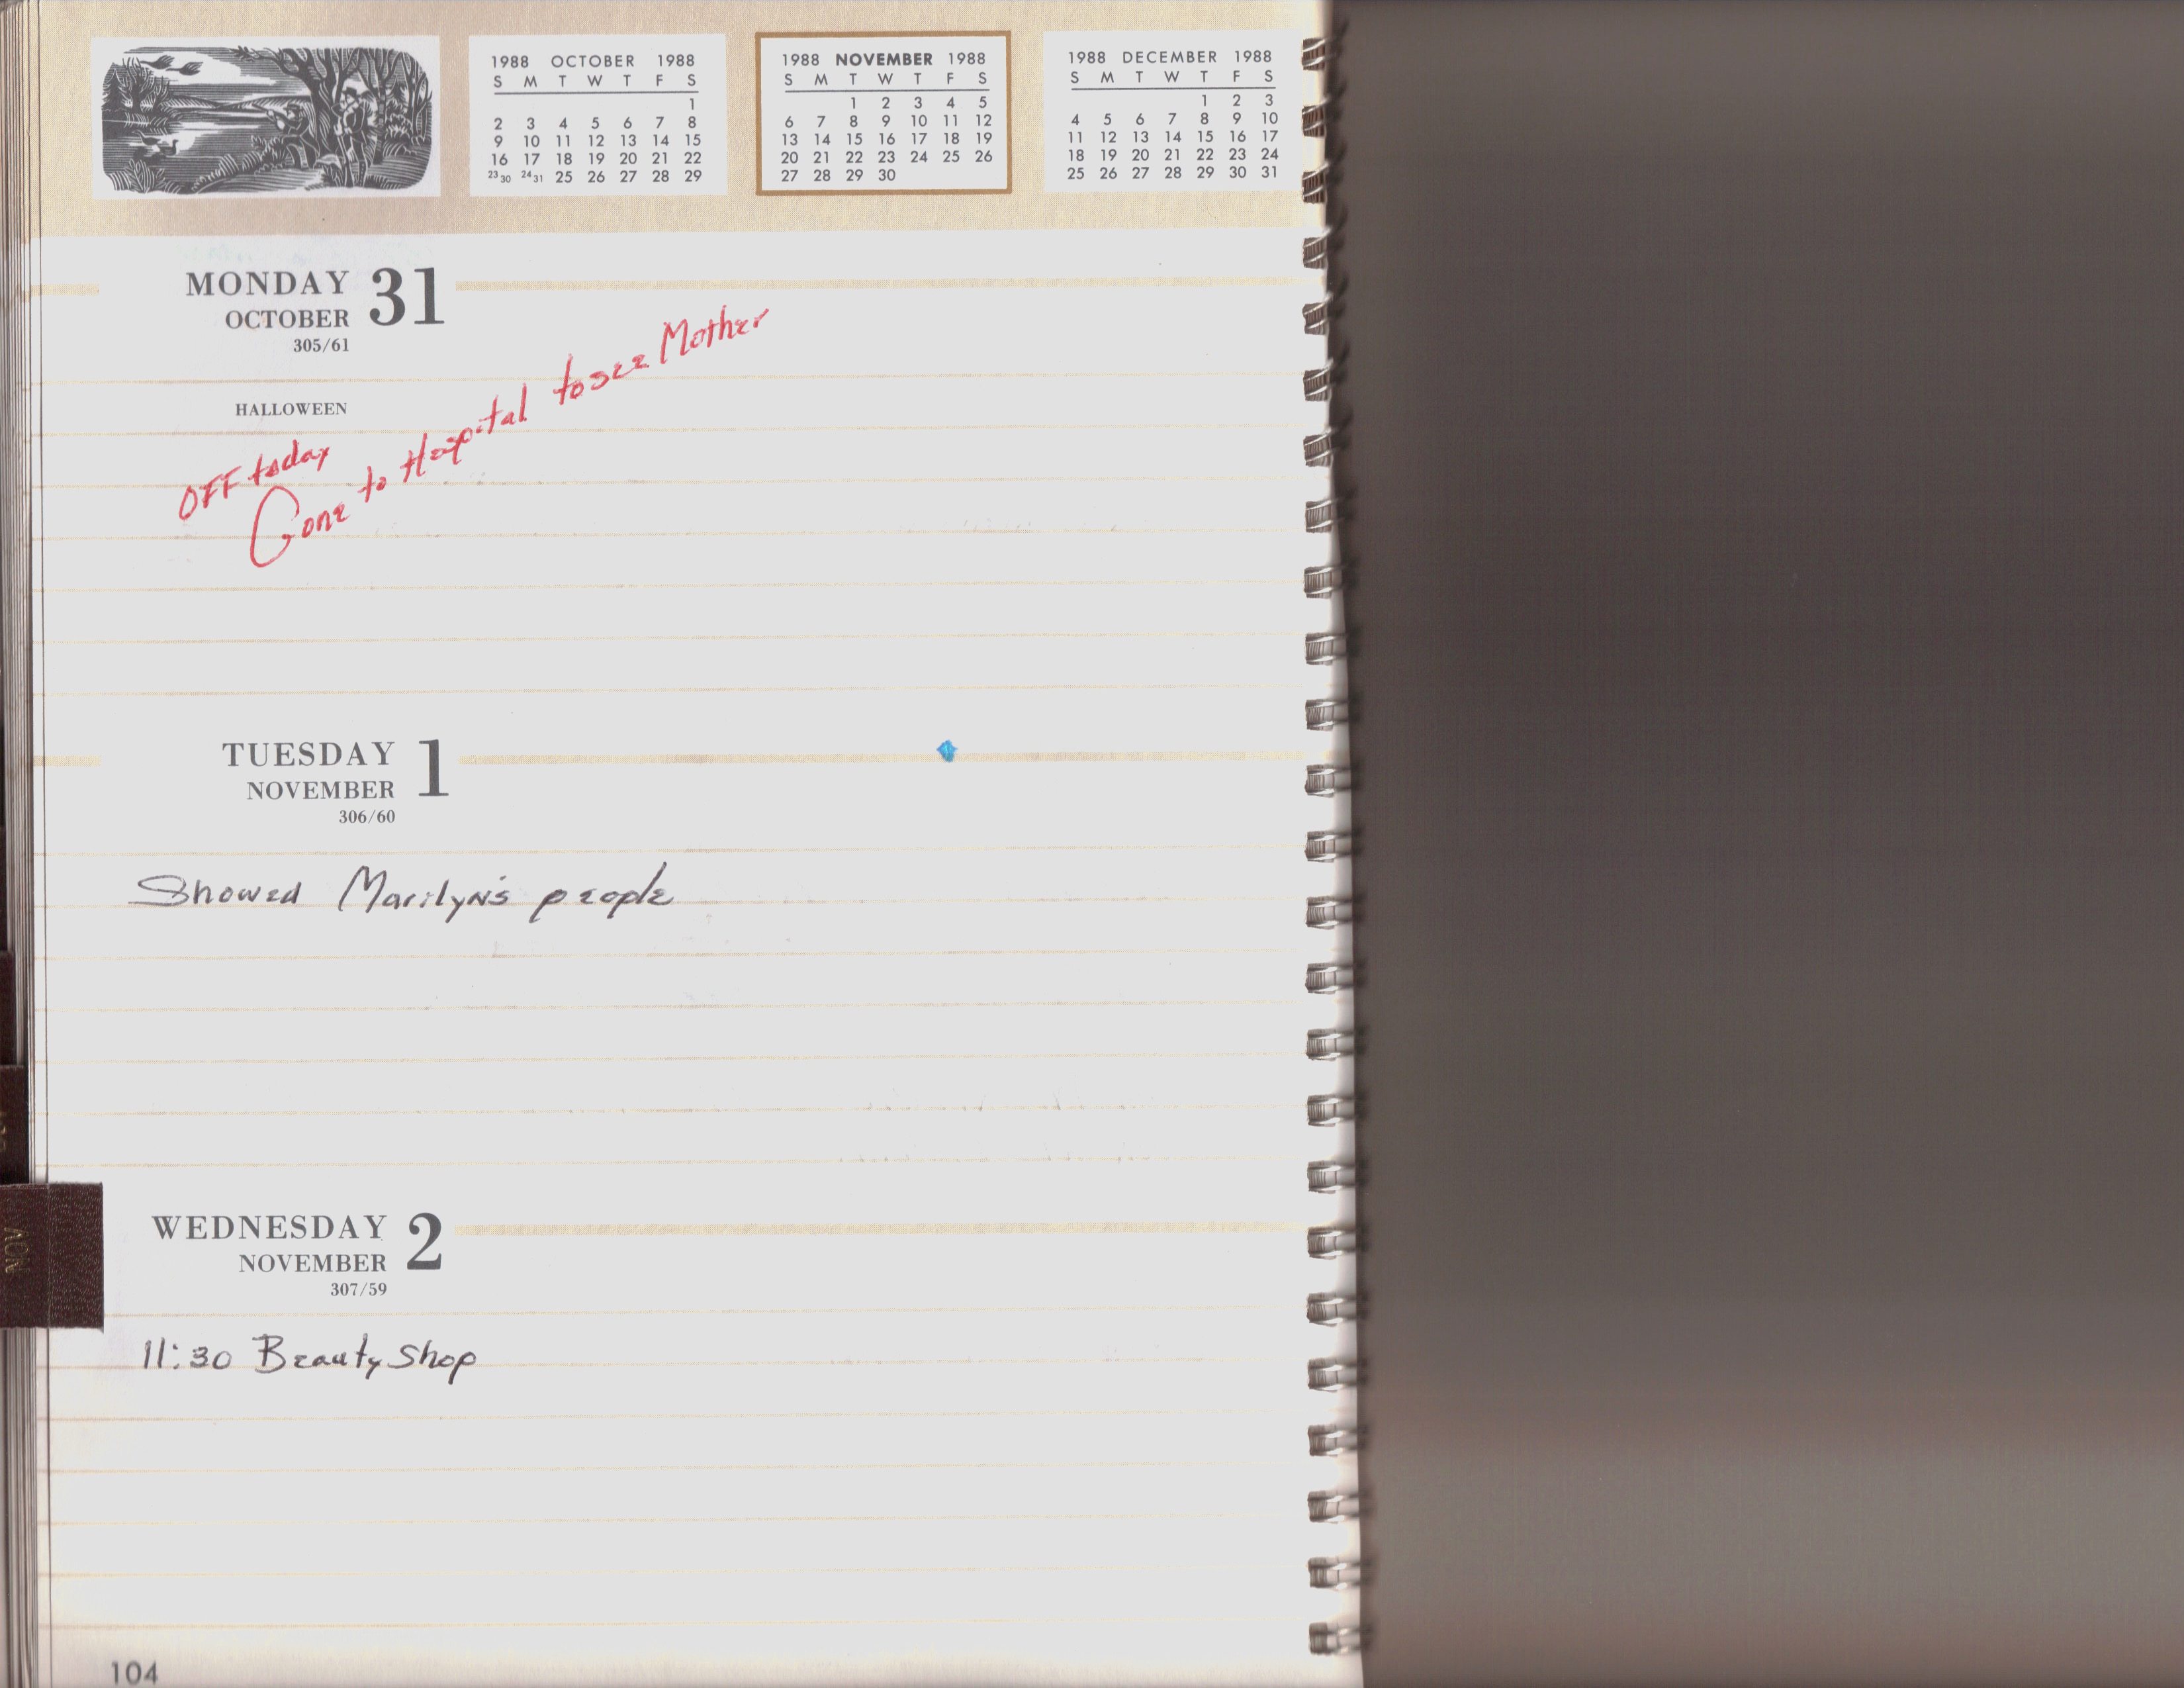 1988 OCTOBER 1988
S M T W T F S
1
2 3 4 5 6 7 8
9 10 11 12 13 14 15
16 17 18 19 20 21 22
23 30 24 31 25 26 27 28 29
1988 NOVEMBER 1988
S M T W T F S
1 2 3 4 5
6 7 8 9 10 11 12
13 14 15 16 17 18 19
20 21 22 23 24 25 26
27 28 29 30
1988 DECEMBER 1988
S M T W T F S
1 2 3
4 5 6 7 8 9 10
11 12 13 14 15 16 17
18 19 20 21 22 23 24
25 26 27 28 29 30 31
MONDAY 31
OCTOBER
305/61
HALLOWEEN
OFF today
Gone to Hospital to see Mother
TUESDAY 1
NOVEMBER
306/60
Showed Marilyn's people
WEDNESDAY 2
NOVEMBER
307/59
NOV
11:30 Beauty Shop
104